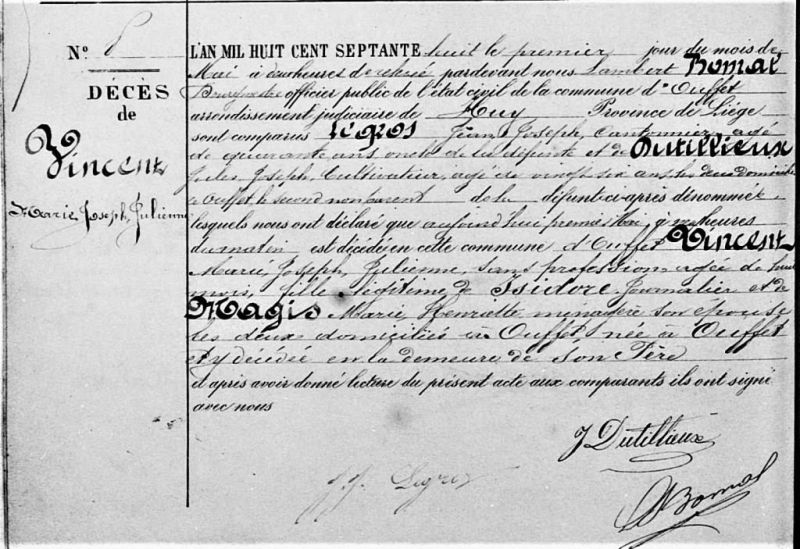 N° 8
DÉCÈS
de
Vincent
Marie Joseph Julienne
L'AN MIL HUIT CENT SEPTANTE huit le premier jour du mois de
Mai à heures de relevé pardevant nous Lambert Bomal
officier public de l'état civil de la commune d'Ouffet
arrondissement judiciaire de Huy Province de Liège
sont comparus Legros Jean Joseph, Cantonnier, agé
de quarante ans oncle de la défunte et de Dutillieux
Jules Joseph, Cultivateur, agé de vingt six ans les deux domiciliés
à Ouffet le second non parent de la défunt ci-après dénommée
lesquels nous ont déclaré que aujourd'hui premier Mai, à heures
du matin est décédée en cette commune d'Ouffet Vincent
Marie, Joseph, Julienne, sans profession agée de huit
mois, fille légitime de Isidore Journalier et de
Magis Marie Henriette menagère son epouse
les deux domiciliés à Ouffet, née à Ouffet
et y décédée en la demeure de son Père
et après avoir donné lecture du présent acte aux comparants ils ont signé
avec nous
J Dutillieux
J. J. Legros
Bomal